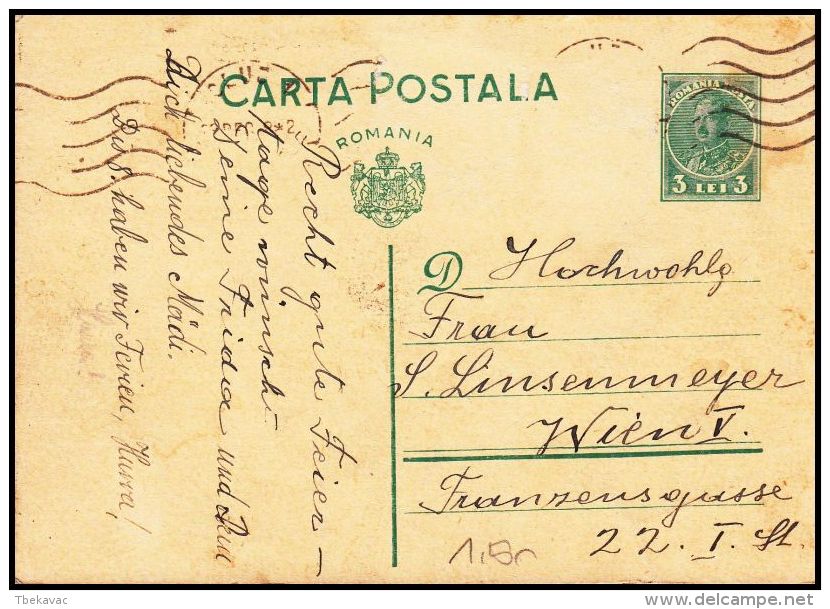 CARTA POSTALA
ROMANIA
ROMANIA POSTA
3 LEI 3
D Hochwohlg
Frau
S. Linsenmeyer
Wien V.
Franzensgasse
22. I. St.
Recht gute Feier-
tage wünscht
Deine Frida und Dein
Dich liebendes Mädi.
Bis 8. haben wir Ferien, Hurra!
Tbekavac
delcampe.net